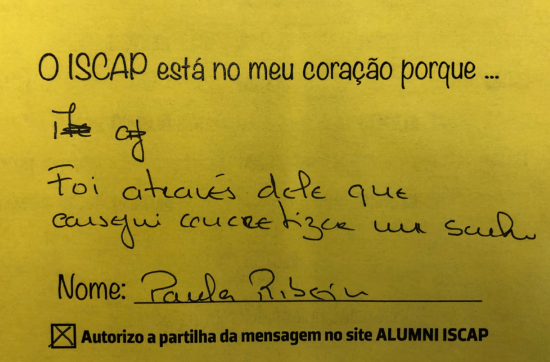 O ISCAP está no meu coração porque ...
Foi através dele que
consegui concretizar um sonho
Nome: Paula Ribeiro
Autorizo a partilha da mensagem no site ALUMNI ISCAP